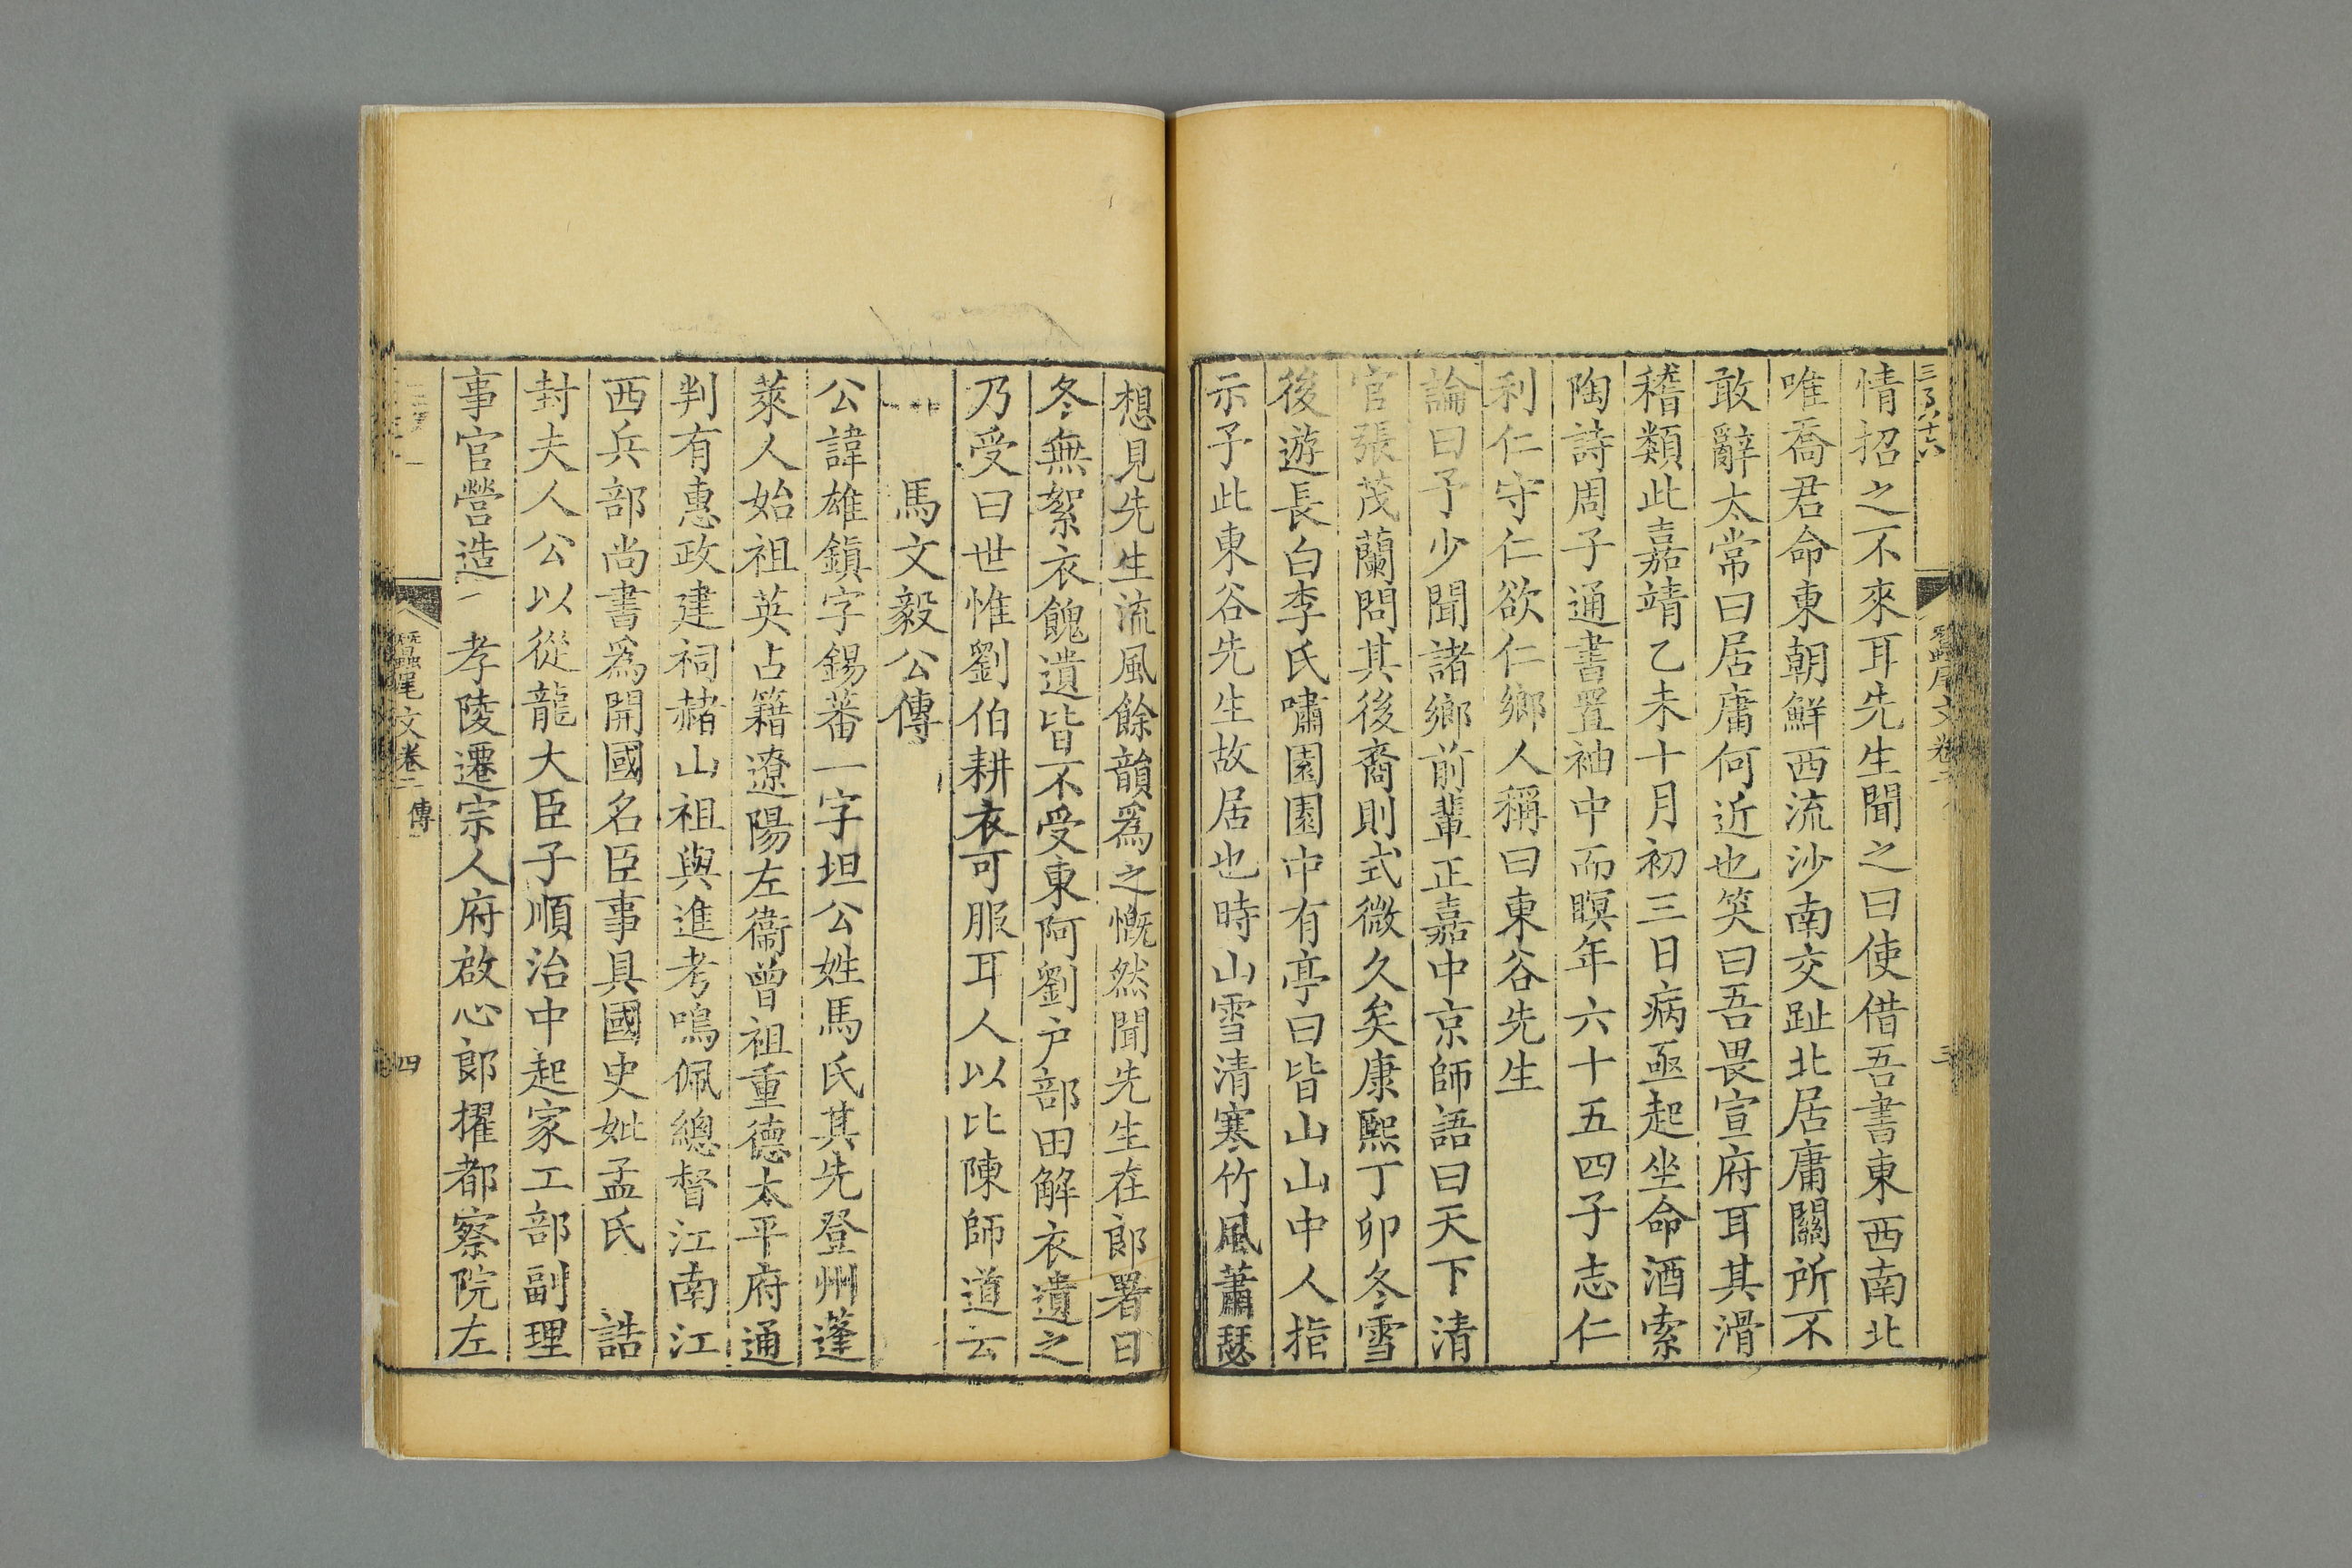 情招之不來耳先生聞之曰使借吾書東西南北
唯喬君命東朝鮮西流沙南交趾北居庸關所不
敢辭太常曰居庸何近也笑曰吾畏宣府耳其滑
稽類此嘉靖乙未十月初三日病亟起坐命酒索
陶詩周子通書置袖中而瞑年六十五四子志仁
利仁守仁欲仁鄉人稱曰東谷先生
論曰予少聞諸鄉前輩正嘉中京師語曰天下清
官張茂蘭問其後裔則式微久矣康熙丁卯冬雪
後遊長白李氏嘯園園中有亭曰皆山山中人指
示予此東谷先生故居也時山雪清寒竹風蕭瑟
想見先生流風餘韻爲之慨然聞先生在郎署日
冬無絮衣餽遺皆不受東阿劉户部田解衣遺之
乃受曰世惟劉伯耕衣可服耳人以比陳師道云
馬文毅公傳
公諱雄鎮字錫蕃一字坦公姓馬氏其先登州蓬
萊人始祖英占籍遼陽左衞曾祖重德太平府通
判有惠政建祠赭山祖與進考鳴佩總督江南江
西兵部尚書爲開國名臣事具國史妣孟氏　誥
封夫人公以從龍大臣子順治中起家工部副理
事官營造　孝陵遷宗人府啟心郎擢都察院左
蠶尾文卷二　傳
四